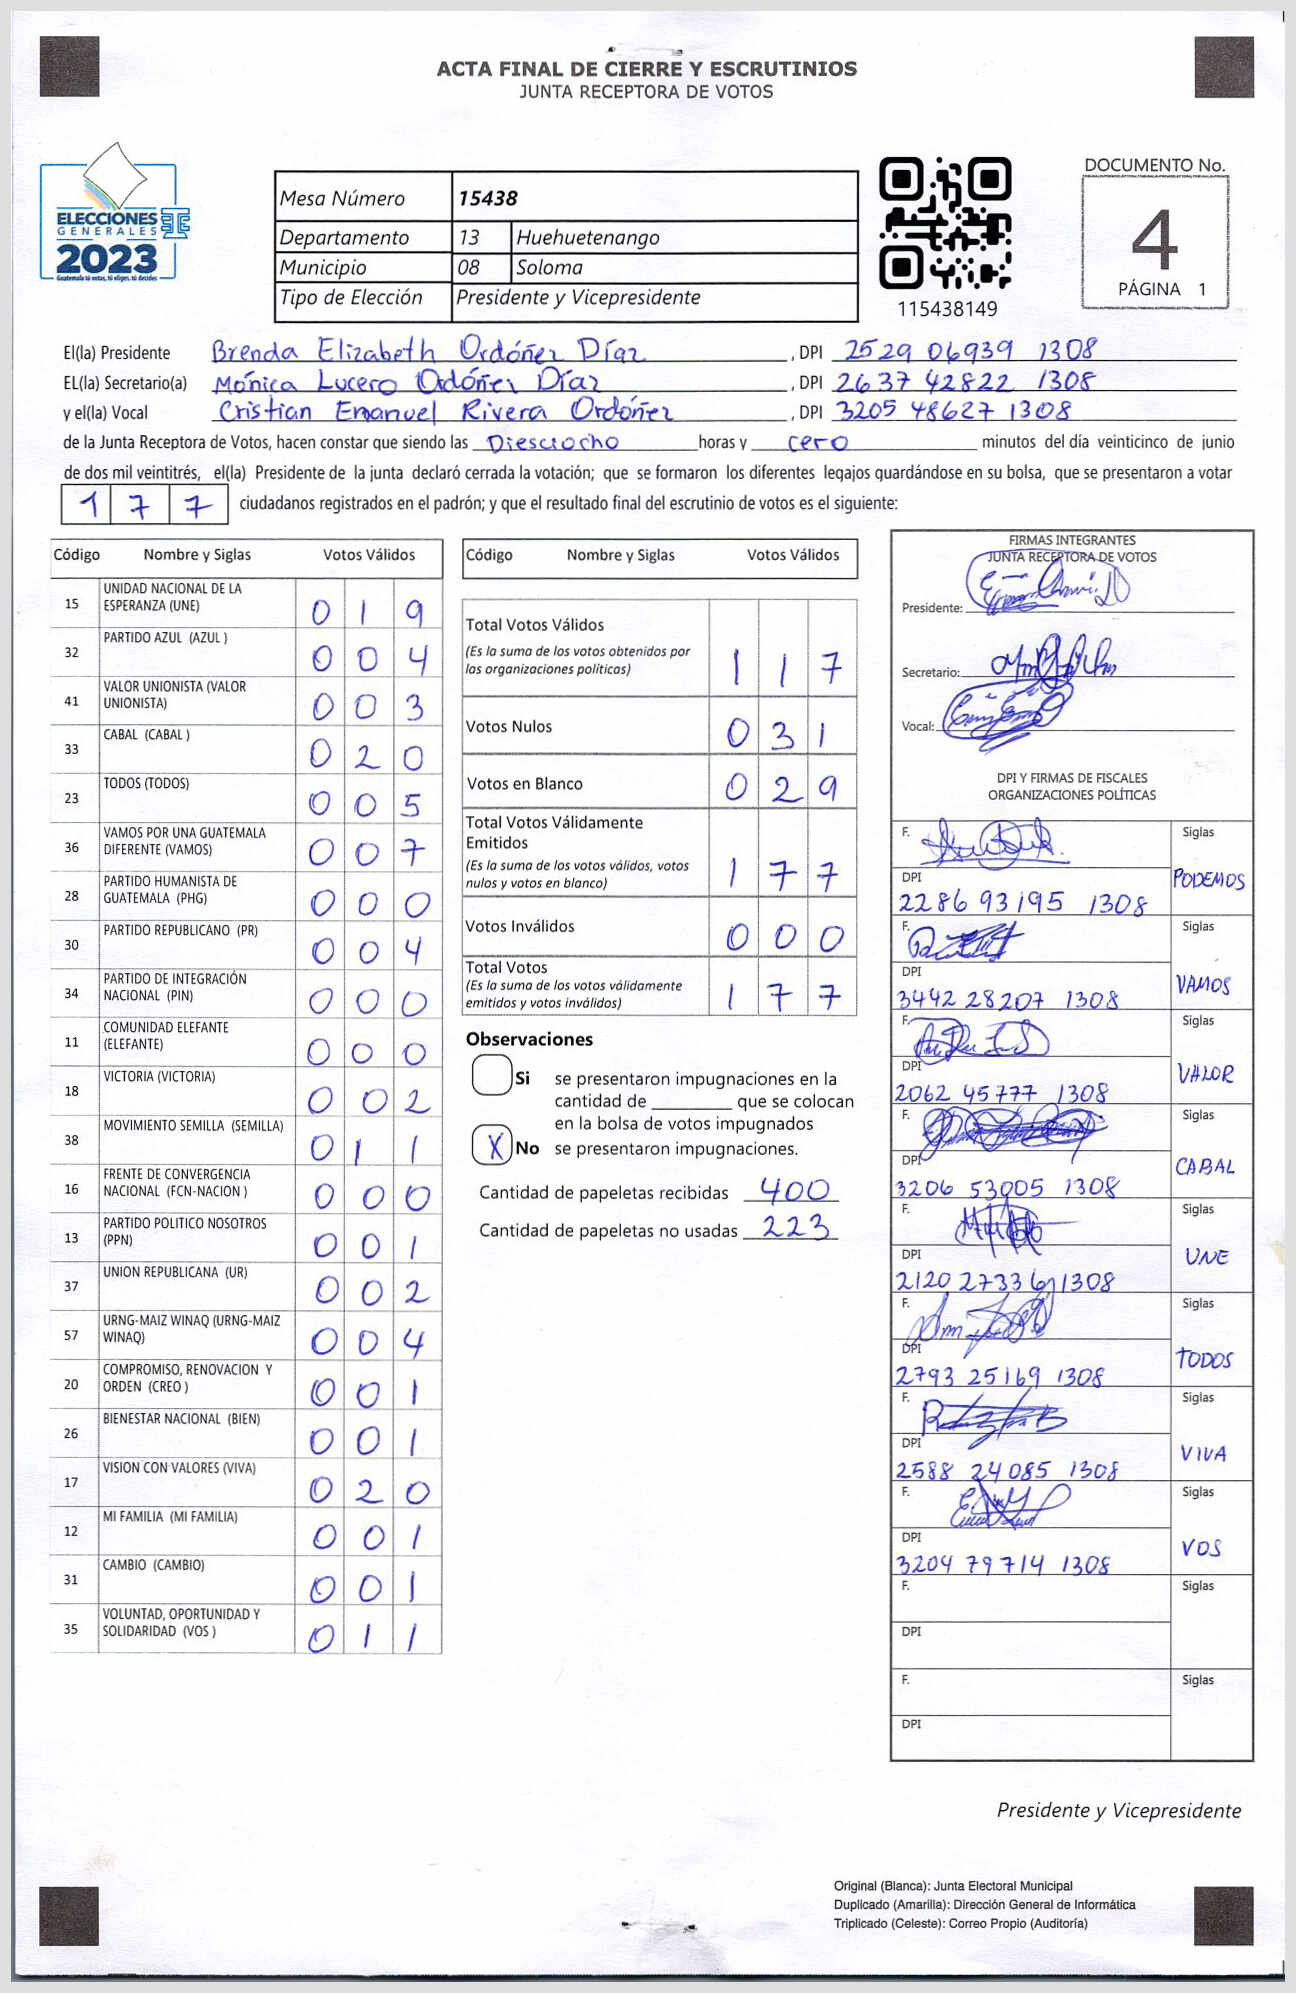 ACTA FINAL DE CIERRE Y ESCRUTINIOS
JUNTA RECEPTORA DE VOTOS
ELECCIONES
GENERALES
2023
Guatemala tú votas, tú eliges, tú decides
Mesa Número 15438
Departamento 13 Huehuetenango
Municipio 08 Soloma
Tipo de Elección Presidente y Vicepresidente
115438149
DOCUMENTO No.
4
PÁGINA 1
El(la) Presidente Brenda Elizabeth Ordóñez Díaz, DPI 2529 06939 1308
EL(la) Secretario(a) Mónica Lucero Ordóñez Díaz, DPI 2637 42822 1308
y el(la) Vocal Cristian Emanuel Rivera Ordóñez, DPI 3205 48627 1308
de la Junta Receptora de Votos, hacen constar que siendo las Diesciocho horas y cero minutos del día veinticinco de junio
de dos mil veintitrés, el(la) Presidente de la junta declaró cerrada la votación; que se formaron los diferentes legajos guardándose en su bolsa, que se presentaron a votar
177 ciudadanos registrados en el padrón; y que el resultado final del escrutinio de votos es el siguiente:
Código Nombre y Siglas Votos Válidos
15 UNIDAD NACIONAL DE LA ESPERANZA (UNE) 019
32 PARTIDO AZUL (AZUL ) 004
41 VALOR UNIONISTA (VALOR UNIONISTA) 003
33 CABAL (CABAL ) 020
23 TODOS (TODOS) 005
36 VAMOS POR UNA GUATEMALA DIFERENTE (VAMOS) 007
28 PARTIDO HUMANISTA DE GUATEMALA (PHG) 000
30 PARTIDO REPUBLICANO (PR) 004
34 PARTIDO DE INTEGRACIÓN NACIONAL (PIN) 000
11 COMUNIDAD ELEFANTE (ELEFANTE) 000
18 VICTORIA (VICTORIA) 002
38 MOVIMIENTO SEMILLA (SEMILLA) 011
16 FRENTE DE CONVERGENCIA NACIONAL (FCN-NACION ) 000
13 PARTIDO POLITICO NOSOTROS (PPN) 001
37 UNION REPUBLICANA (UR) 002
57 URNG-MAIZ WINAQ (URNG-MAIZ WINAQ) 004
20 COMPROMISO, RENOVACION Y ORDEN (CREO ) 001
26 BIENESTAR NACIONAL (BIEN) 001
17 VISION CON VALORES (VIVA) 020
12 MI FAMILIA (MI FAMILIA) 001
31 CAMBIO (CAMBIO) 001
35 VOLUNTAD, OPORTUNIDAD Y SOLIDARIDAD (VOS ) 011
Código Nombre y Siglas Votos Válidos
Total Votos Válidos 117
(Es la suma de los votos obtenidos por
las organizaciones políticas)
Votos Nulos 031
Votos en Blanco 029
Total Votos Válidamente
Emitidos 177
(Es la suma de los votos válidos, votos
nulos y votos en blanco)
Votos Inválidos 000
Total Votos 177
(Es la suma de los votos válidamente
emitidos y votos inválidos)
Observaciones
Si se presentaron impugnaciones en la
cantidad de ________ que se colocan
en la bolsa de votos impugnados
X No se presentaron impugnaciones.
Cantidad de papeletas recibidas 400
Cantidad de papeletas no usadas 223
FIRMAS INTEGRANTES
JUNTA RECEPTORA DE VOTOS
Presidente:
Secretario:
Vocal:
DPI Y FIRMAS DE FISCALES
ORGANIZACIONES POLÍTICAS
F. Siglas
DPI PODEMOS
2286 93195 1308
F. Siglas
DPI VAMOS
3442 28207 1308
F. Siglas
DPI VALOR
2062 45777 1308
F. Siglas
DPI CABAL
3206 53005 1308
F. Siglas
DPI UNE
2120 27336 1308
F. Siglas
DPI TODOS
2793 25169 1308
F. Siglas
DPI VIVA
2588 24085 1308
F. Siglas
DPI VOS
3204 79714 1308
F. Siglas
DPI
F. Siglas
DPI
Presidente y Vicepresidente
Original (Blanca): Junta Electoral Municipal
Duplicado (Amarilla): Dirección General de Informática
Triplicado (Celeste): Correo Propio (Auditoría)